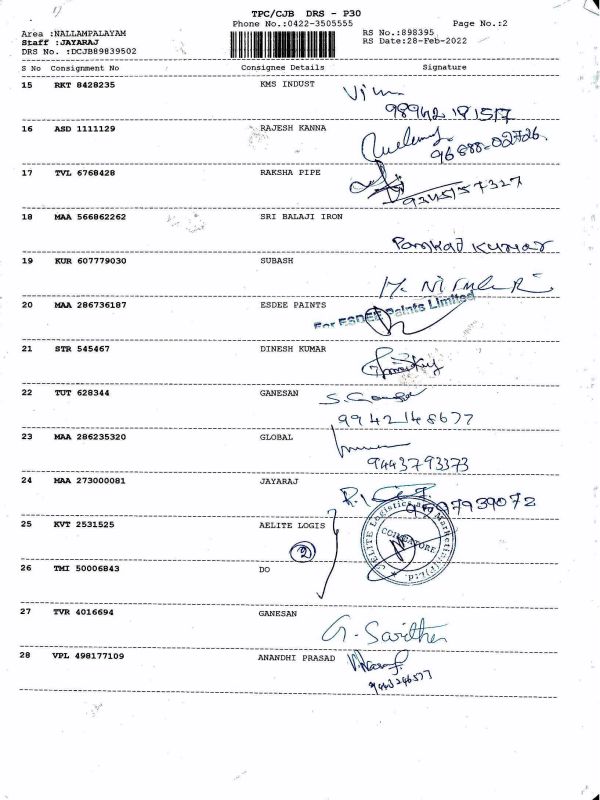 TPC/CJB DRS - P30
Phone No.:0422-3505555
Page No.:2
Area :NALLAMPALAYAM
Staff :JAYARAJ
DRS No. :DCJB89839502
RS No.:898395
RS Date:28-Feb-2022
S No Consignment No Consignee Details Signature
15 RKT 8428235 KMS INDUST
98942 181517
16 ASD 1111129 RAJESH KANNA
96888-02726
17 TVL 6768428 RAKSHA PIPE
9245157327
18 MAA 566862262 SRI BALAJI IRON
Pankaj Kumar
19 KUR 607779030 SUBASH
20 MAA 286736187 ESDEE PAINTS
For ESDEE Paints Limited
21 STR 545467 DINESH KUMAR
22 TUT 628344 GANESAN
9942148677
23 MAA 286235320 GLOBAL
9443793373
24 MAA 273000081 JAYARAJ
25 KVT 2531525 AELITE LOGIS
2
COIMBATORE
26 TMI 50006843 DO
27 TVR 4016694 GANESAN
28 VPL 498177109 ANANDHI PRASAD